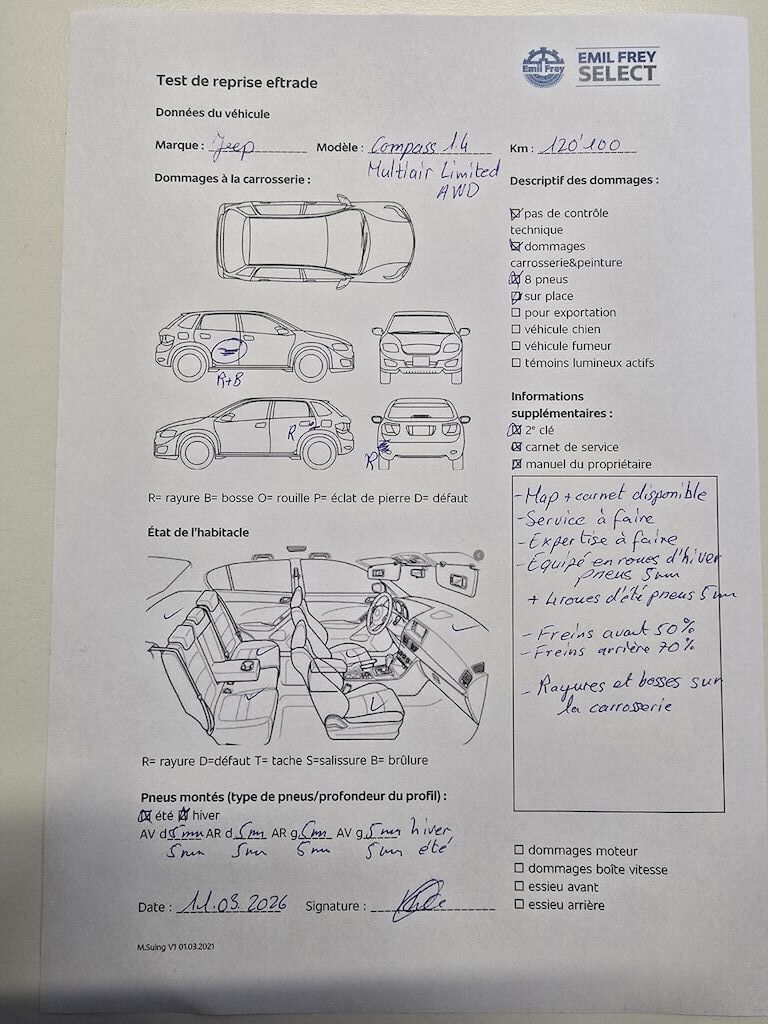 Emil Frey
EMIL FREY
SELECT
Test de reprise eftrade
Données du véhicule
Marque : Jeep Modèle : Compass 1.4 Km : 120'100
Multiair Limited
AWD
Dommages à la carrosserie :
R+B
R
R
R= rayure B= bosse O= rouille P= éclat de pierre D= défaut
Descriptif des dommages :
☒ pas de contrôle
technique
☒ dommages
carrosserie&peinture
☒ 8 pneus
☒ sur place
☐ pour exportation
☐ véhicule chien
☐ véhicule fumeur
☐ témoins lumineux actifs
Informations
supplémentaires :
☒ 2e clé
☒ carnet de service
☒ manuel du propriétaire
- Map + carnet disponible
- Service à faire
- Expertise à faire
- Equipé en roues d'hiver
pneus 5mm
+ 4 roues d'été pneus 5mm
- Freins avant 50%
- Freins arrière 70%
- Rayures et bosses sur
la carrosserie
État de l'habitacle
R= rayure D=défaut T= tache S=salissure B= brûlure
Pneus montés (type de pneus/profondeur du profil) :
☒ été ☒ hiver
AV d 5mm AR d 5mm AR g 5mm AV g 5mm hiver
5mm 5mm 5mm 5mm été
☐ dommages moteur
☐ dommages boîte vitesse
☐ essieu avant
☐ essieu arrière
Date : 11.03.2026 Signature :
M.Suing V1 01.03.2021